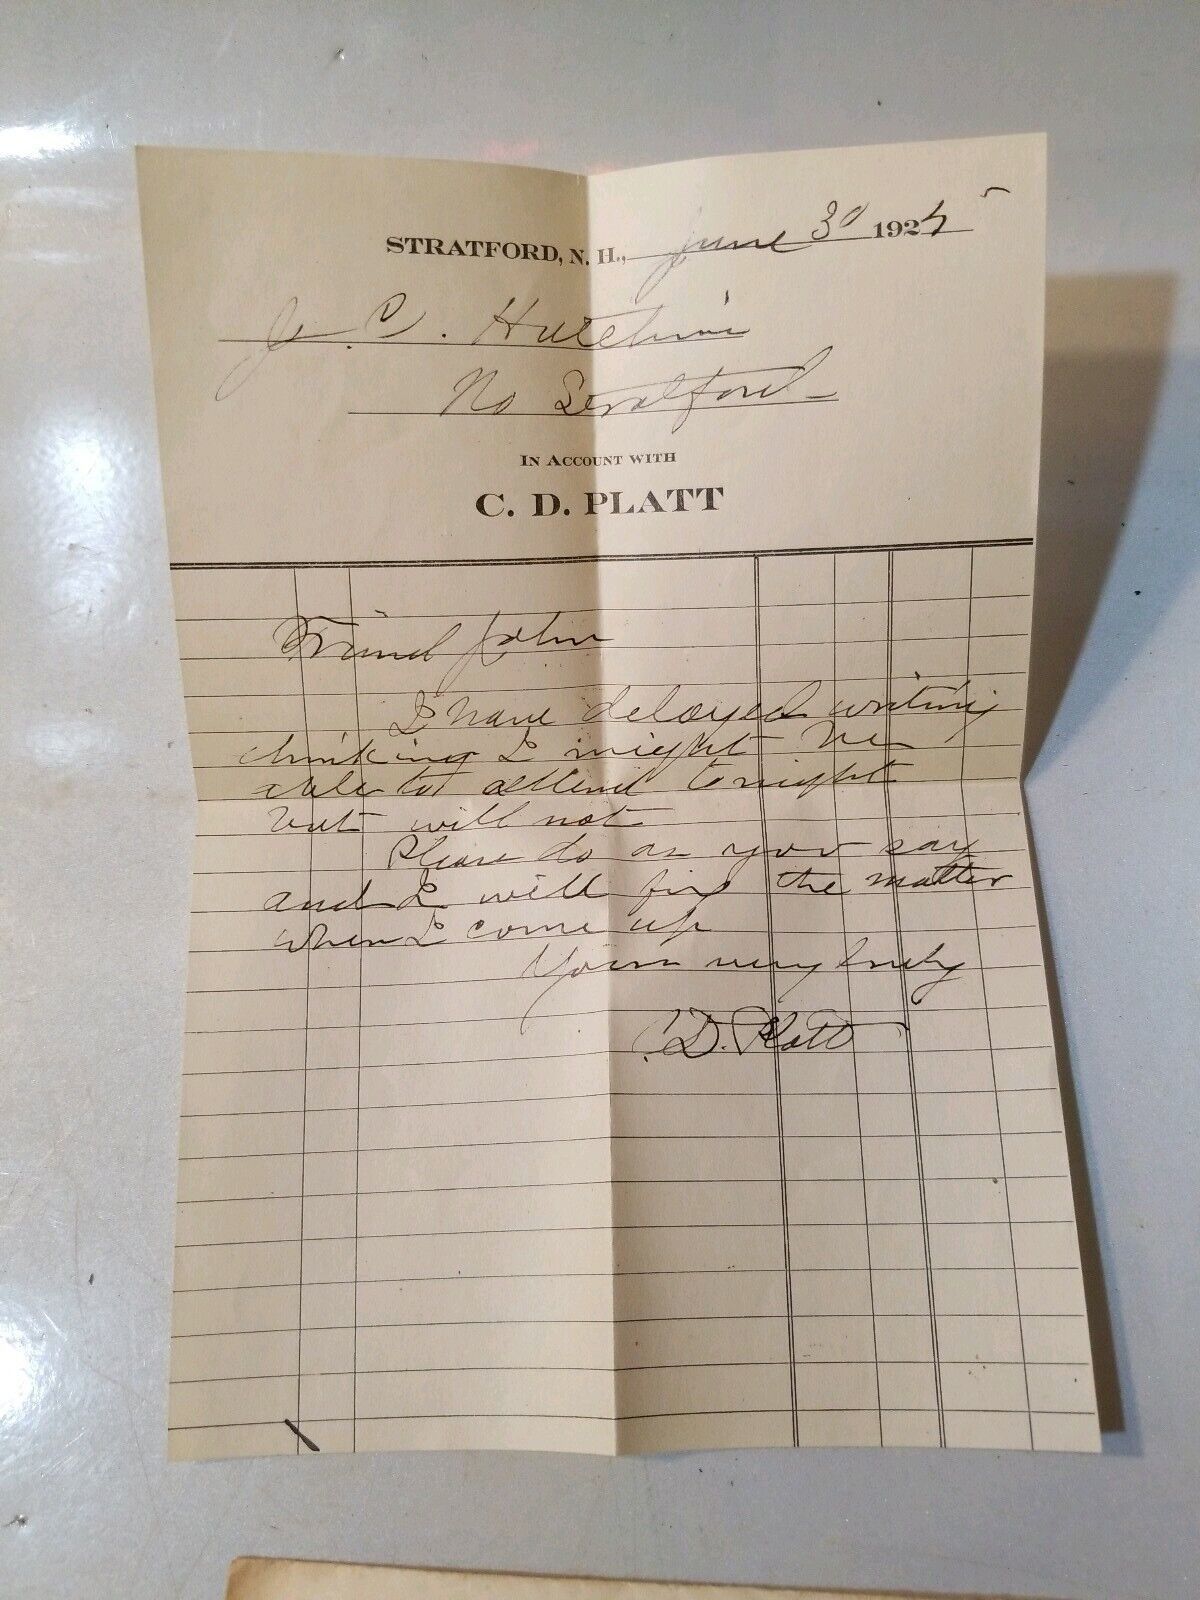 STRATFORD, N. H., June 30 1925
J. C. Hutchins
No Stratford
IN ACCOUNT WITH
C. D. PLATT
Friend John
I have delayed writing
thinking I might be
able to attend tonight
but will not
Please do as you say
and I will fix the matter
when I come up
Yours very truly
C. D. Platt